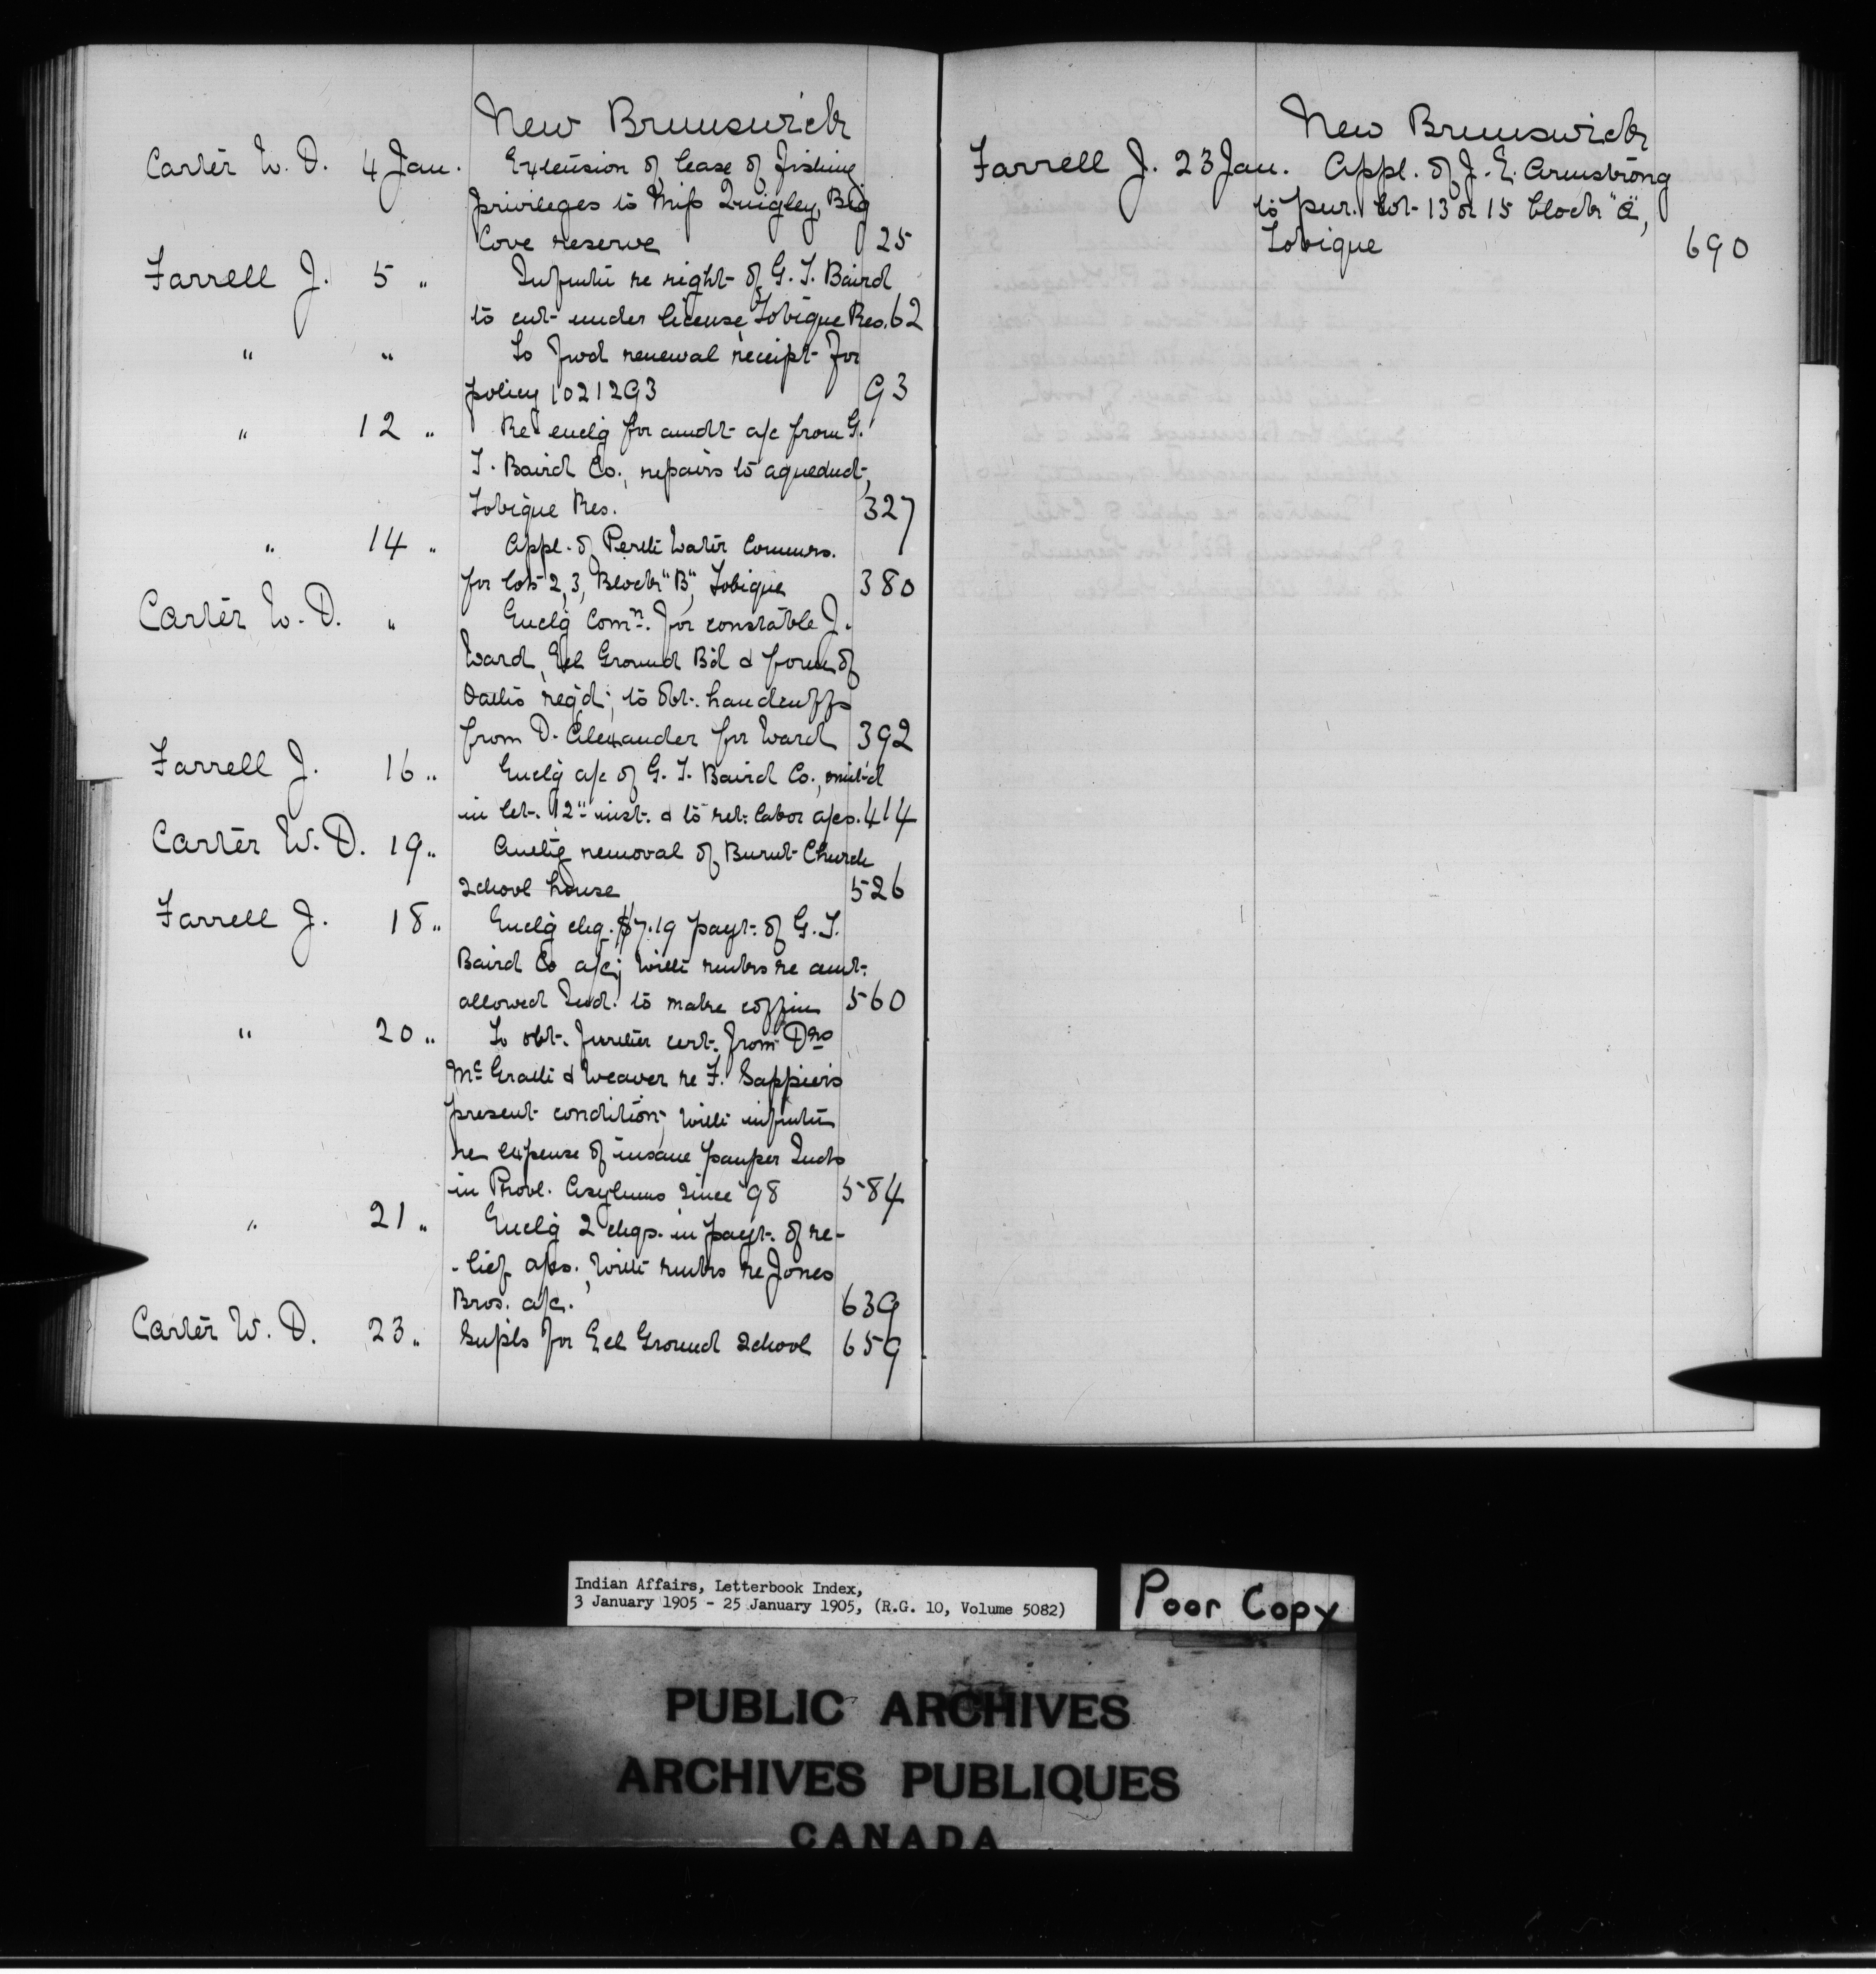 New Brunswick
Carter W. D. 4 Jan. Extension of lease of fishing
privileges to Miss Quigley, Big
Cove reserve 25
Farrell J. 5 " Infmtn re right of G. T. Baird
to cut under license Tobique Res. 62
" " To fwd renewal receipt for
policy 1021293 93
" 12 " Re encl'g for amdt a/c from G.
T. Baird Co., repairs to aqueduct,
Tobique Res. 327
" 14 " Appl. of Perth Water Commrs.
for lots 2, 3, Block "B", Tobique 380
Carter W. D. " Encl'g Comn. for constable J.
Ward, Eel Ground B'd & form of
Oaths req'd; to obt. handcuffs
from D. Alexander for Ward 392
Farrell J. 16 " Encl'g a/c of G. T. Baird Co., omit'd
in let. 12" inst. & to ret. labor a/cs. 414
Carter W. D. 19 " removal of Burnt Church
School house 526
Farrell J. 18 " Encl'g chq. $7.19 payt. of G. T.
Baird Co a/c; with rmks re amt.
allowed Ind. to make coffin 560
" 20 " To obt. further cert. from Drs
McGrath & Weaver re F. Sappier's
present condition; with infmtn
re expense of insane pauper Inds
in Provl. Asylums since '98 584
" 21 " Encl'g 2 chqs. in payt. of re-
-lief a/cs. with rmks re Jones
Bros. a/c. 639
Carter W. D. 23 " Supls for Eel Ground School 659
New Brunswick
Farrell J. 23 Jan. Appl. of J. E. Armstrong
to pur. lot 13 or 15 block "A",
Tobique 690
Indian Affairs, Letterbook Index,
3 January 1905 - 25 January 1905, (R.G. 10, Volume 5082)
Poor Copy
PUBLIC ARCHIVES
ARCHIVES PUBLIQUES
CANADA